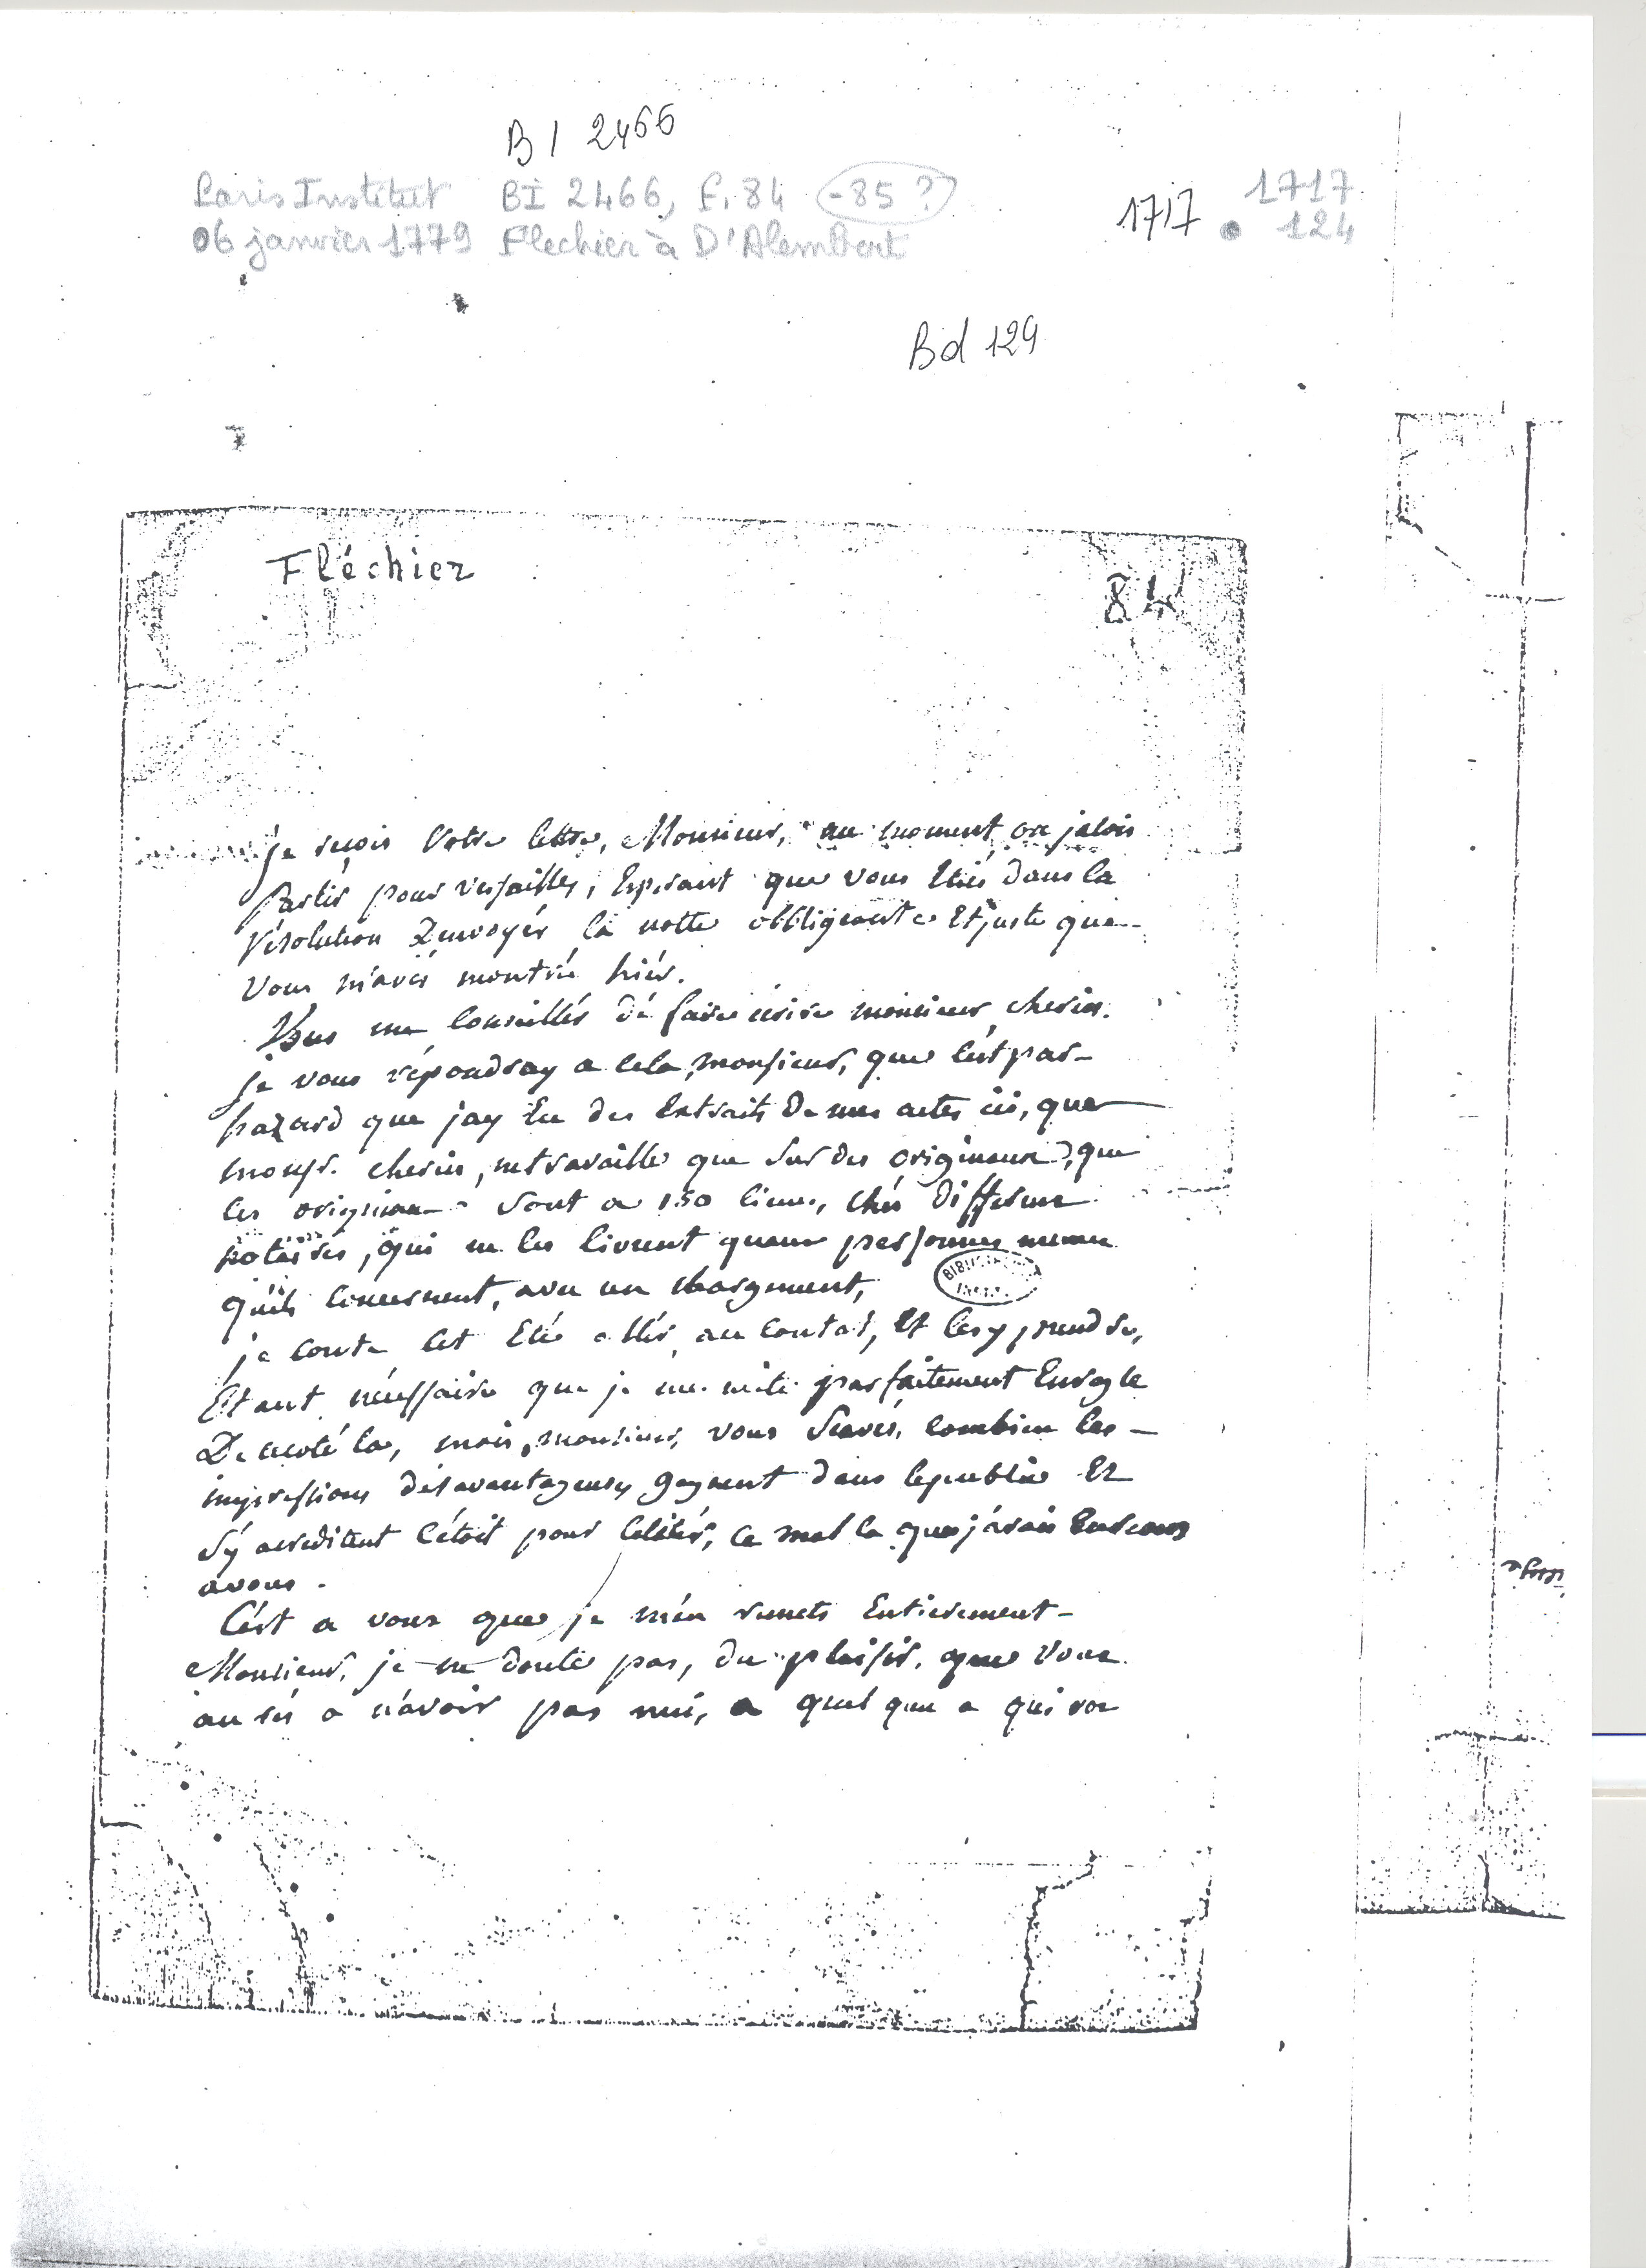 B I 2466
Paris Institut BI 2466, F. 84 -85 ?
06 janvier 1779 Flechier à D'Alembert
1717
1717
124
Bd 129
Fléchier
84
je reçois votre lettre, Monsieur, au moment ou jalois
Partir pour versailles, Esperant que vous Etiés dans la
résolution Denvoyér la notte obbligeante Et juste que
vous m'avés montrée hiér.
Vous me conseillés dé faire écrire monsieur cherin.
je vous répondray a cela, monsieur, que c'ést par
hazard que jay Eu des Extraits De mes actes ici, que
monsr. cherin, ne travaille que sur des originaux, que
les originaux sont a 150 lieues, chés differens
notaires, qui ne les livrent quaux personnes meme
qu'ils concernent, avec un chargement,
je conte cet Eté allér au contat, Et les y prendre,
Etant néssaire que je me mite parfaitement En regle
De ce coté la, mais, monsieur, vous scavés, combien les
impressions désavantageuses gagnent dans le public Et
s'y acreditent c'étoit pour celà, ce mal la que j'avais Recours
avous.
C'ést a vous que je m'én remets Entierement
Monsieur, je ne doute pas, du plaisir, que vous
aurés a n'avoir pas nui, a quelquun a qui on
BIBLIOTHEQUE